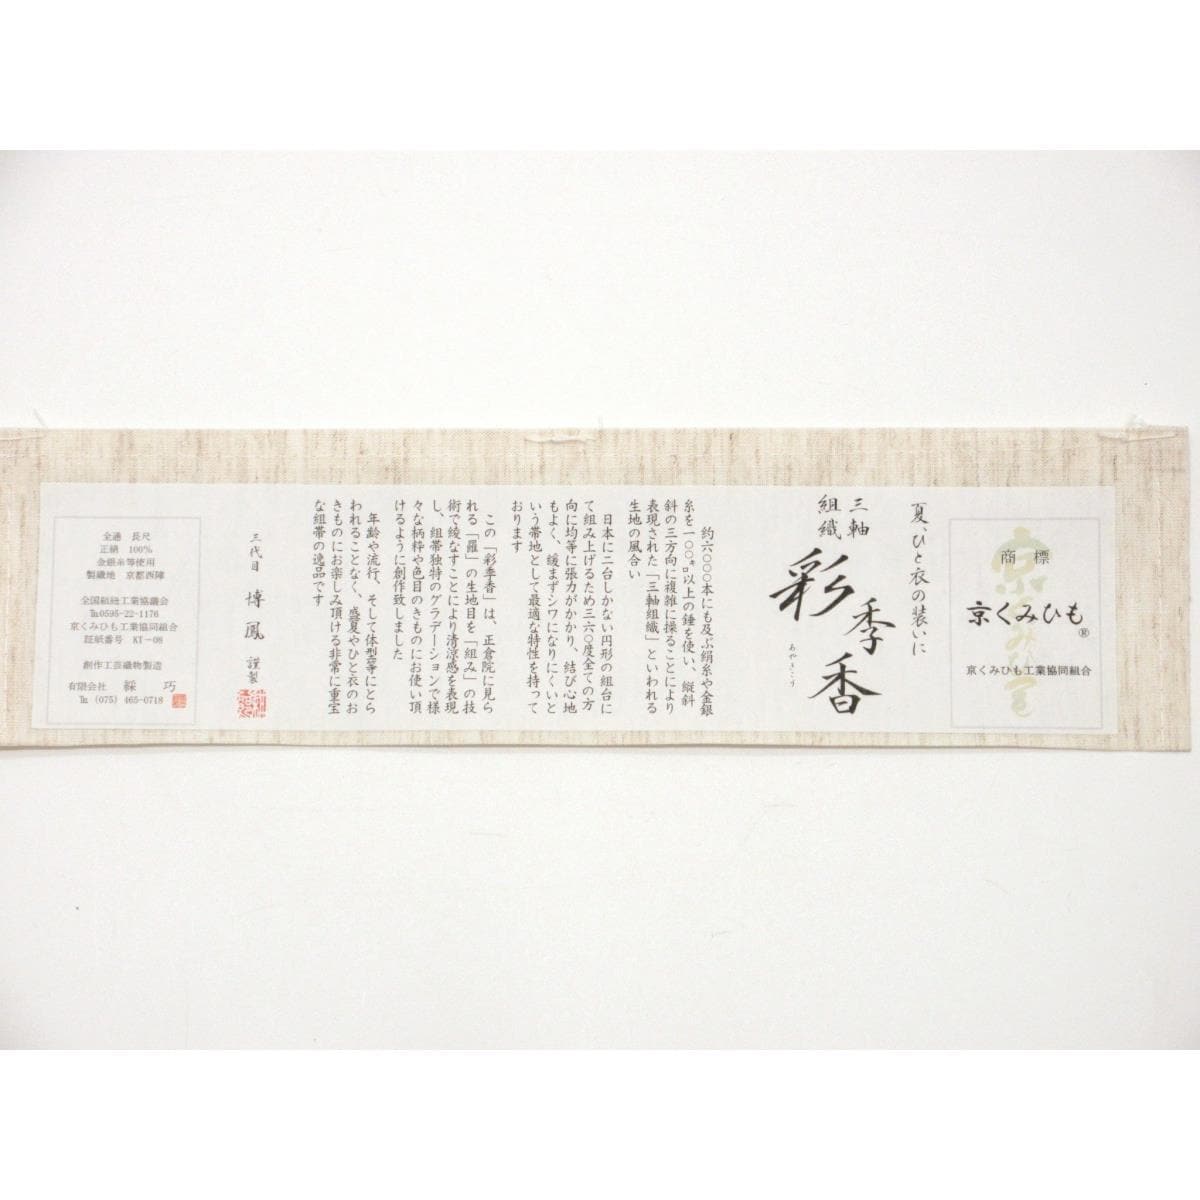 商標
京くみひも®
京くみひも工業協同組合
夏、ひと衣の装いに
三軸
組織
彩季香
あやきこう
約六〇〇〇本にも及ぶ絹糸や金銀
糸を一〇〇㌔以上の錘を使い、縦斜
斜の三方向に複雑に操ることにより
表現された「三軸組織」といわれる
生地の風合い
日本に二台しかない円形の組台に
て組み上げるため三六〇度全ての方
向に均等に張力がかかり、結び心地
もよく、緩まずシワになりにくいと
いう帯地として最適な特性を持って
おります
この「彩季香」は、正倉院に見ら
れる「羅」の生地目を「組み」の技
術で綾なすことにより清涼感を表現
し、組帯独特のグラデーションで様
々な柄粋や色目のきものにお使い頂
けるように創作致しました
年齢や流行、そして体型等にとら
われることなく、盛夏やひと衣のお
きものにお楽しみ頂ける非常に重宝
な組帯の逸品です
三代目 博鳳 謹製
全通 長尺
正絹 100%
金銀糸等使用
製織地 京都西陣
全国組紐工業協議会
℡0595-22-1176
京くみひも工業協同組合
証紙番号 KT-08
創作工芸織物製造
有限会社 綵巧
℡ (075) 465-0718